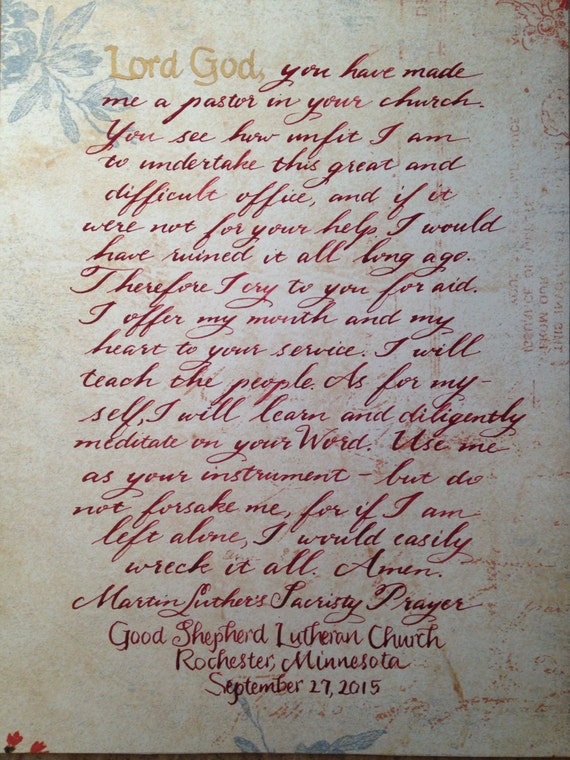 Lord God, you have made
me a pastor in your church.
You see how unfit I am
to undertake this great and
difficult office, and if it
were not for your help, I would
have ruined it all long ago.
Therefore I cry to you for aid.
I offer my mouth and my
heart to your service. I will
teach the people. As for my-
self, I will learn and diligently
meditate on your Word. Use me
as your instrument - but do
not forsake me, for if I am
left alone, I would easily
wreck it all. Amen.
Martin Luther's Sacristy Prayer
Good Shepherd Lutheran Church
Rochester, Minnesota
September 27, 2015